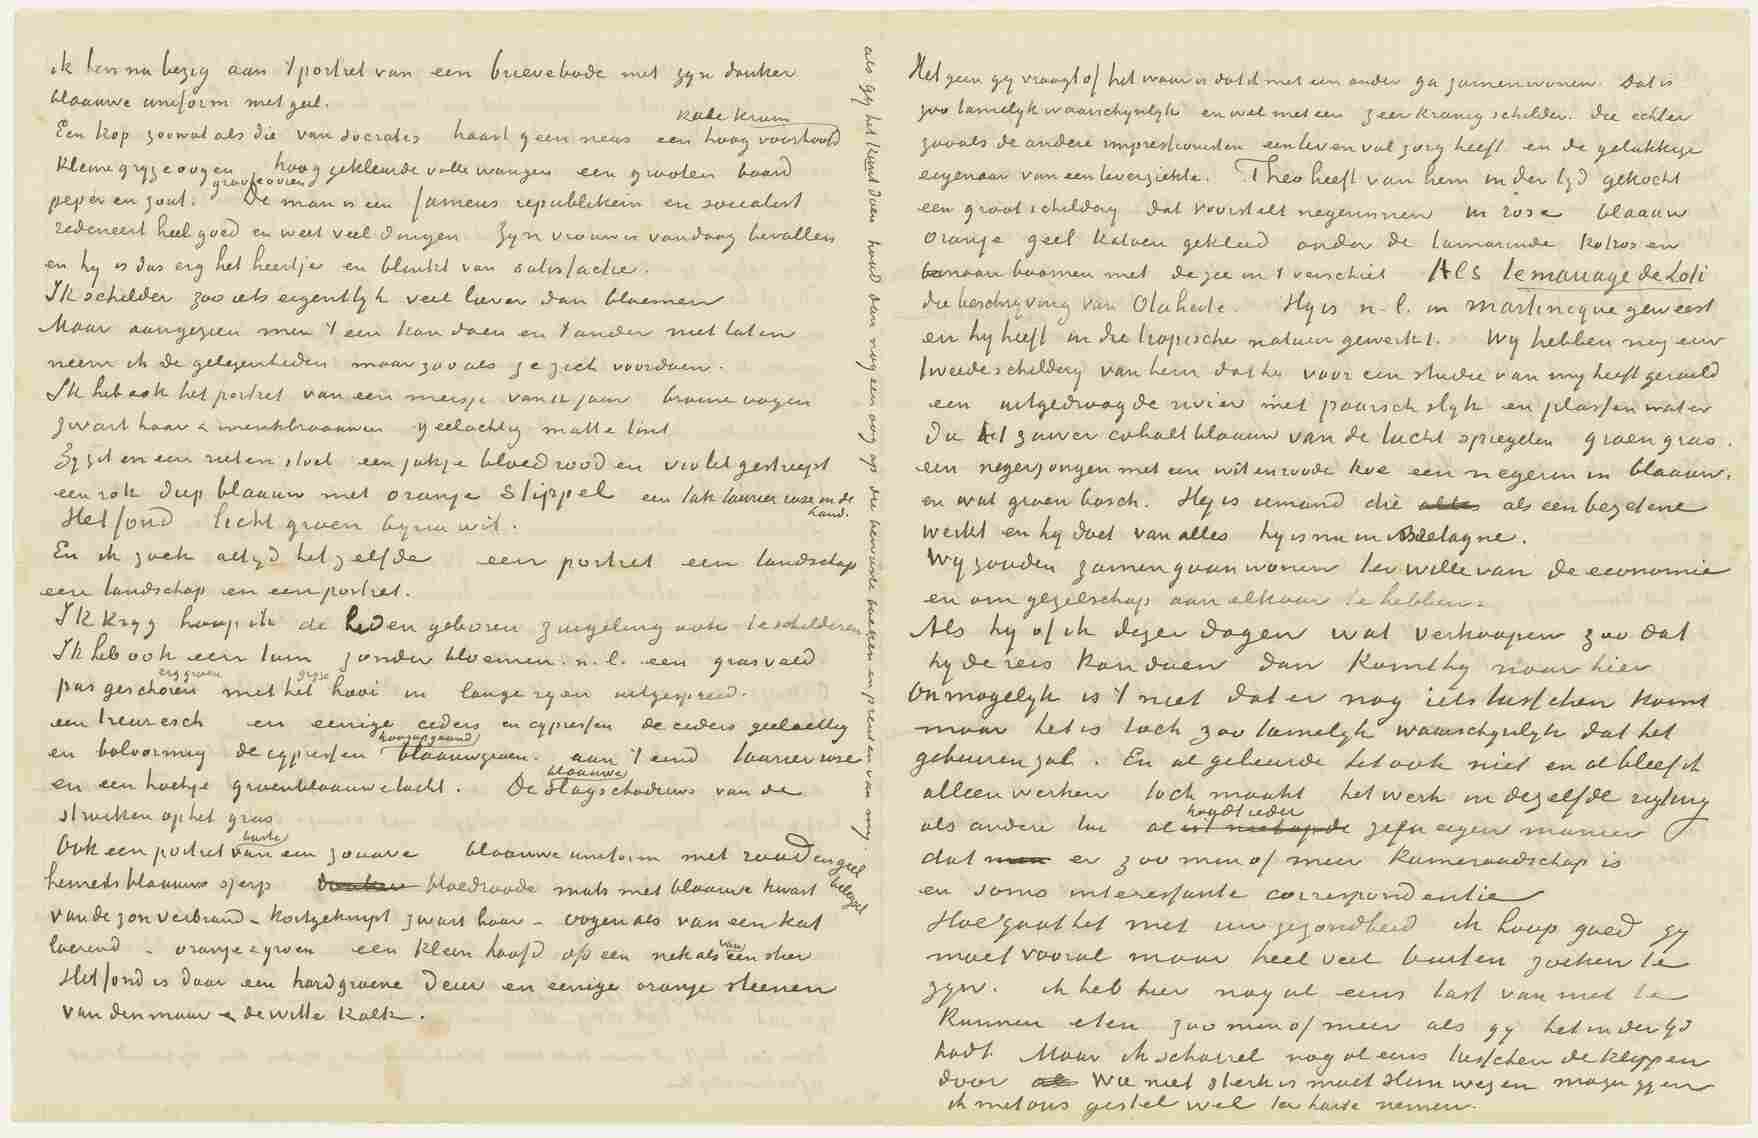 ik ben nu bezig aan 't portret van een brievebode met zijn donker
blaauwe uniform met geel.
Een kop zoowat als die van Socrates haast geen neus een hoog voorhoofd
kale kruin
kleine gryze oogen hoog gekleurde volle wangen een grooten baard
peper en zout. groote ooren De man is een fameus republikein en socialist
redeneert heel goed en weet veel dingen. Zyn vrouw is vandaag bevallen
en hy is dus erg het heertje en blinkt van satisfactie.
Ik schilder zoo iets eigentlyk veel liever dan bloemen
Maar aangezien men 't een kan doen en 't ander niet laten
neem ik de gelegenheden maar zooals ze zich voordoen.
Ik heb ook het portret van een meisje van 12 jaar bruine oogen
zwart haar & wenkbraauwen geelachtig matte tint
Zy zit in een rieten stoel een jakje bloedrood en violet gestreept
een rok diep blaauw met oranje stippel een tak laurier rose in de
hand.
Het fond licht groen byna wit.
En ik zoek altyd hetzelfde een portret een landschap
een landschap en een portret.
Ik kryg hoop ik de heden geboren zuigeling ook te schilderen
Ik heb ook een tuin zonder bloemen. n.l. een grasveld
pas geschoren erg groen met het gryze hooi in lange ryen uitgespreid.
een treuresch en eenige ceders en cypressen de ceders geelachtig
en bolvormig de cypressen hoogopgaand blaauwgroen. aan 't eind laurierrose
en een hoekje groenblaauwe lucht. De blaauwe slagschaduws van de
struiken op het gras
Ook een portret buste van een zouave blaauwe uniform met rood en geel
belegsel
hemelsblaauwe sjerp bloedroode muts met blaauwe kwast
van de zon verbrand – kortgeknipt zwart haar – oogen als van een kat
loerend – oranje & groen een klein hoofd op een nek als van een stier
Het fond is daar een hardgroene deur en eenige oranje steenen
van den muur & de witte kalk.
als gy het kunt doen houd dan nog een oog op die bewuste doeken en prenten van my
Het geen gy vraagt of het waar is dat ik met een ander ga zamenwonen. Dat is
zoo tamelyk waarschynlyk en wel met een zeer kranig schilder. die echter
zooals de andere impressionisten een leven vol zorg heeft en de gelukkige
eigenaar van een leverziekte. Theo heeft van hem in der tyd gekocht
een groot schildery dat voorstelt negerinnen in rose blaauw
oranje geel katoen gekleed onder de tamarinde kokos en
banaan boomen met de zee in 't verschiet. Als le mariage de Loti
die beschryving van Otaheite. Hy is n.l. in Martinique geweest
en hy heeft in die tropische natuur gewerkt. Wy hebben nog een
tweede schildery van hem dat hy voor een studie van my heeft geruild
een uitgedroogde rivier met paarsch slyk en plassen water
die het zuiver cobaltblaauw van de lucht spiegelen groen gras.
een negerjongen met een wit en roode koe een negerin in blaauw.
en wat groen bosch. Hy is iemand die als een bezetene
werkt en hy doet van alles hy is nu in Bretagne.
Wy zouden zamen gaan wonen ter wille van de economie
en om gezelschap aan elkaar te hebben.
Als hy of ik dezer dagen wat verkoopen zoo dat
hy de reis kan doen dan komt hy naar hier
Onmogelyk is 't niet dat er nog iets tusschen komt
maar het is toch zoo tamelyk waarschynlyk dat het
gebeuren zal. En al gebeurde het ook niet en al bleef ik
alleen werken toch maakt het werk in dezelfde rigting
als andere tu al houdt ieder zyn eigen manier
dat er zoo min of meer kameraadschap is
en soms interessante correspondentie
Hoe gaat het met uw gezondheid ik hoop goed gy
moet vooral maar heel veel buiten zoeken te
zyn. ik heb hier nog al eens last van niet te
kunnen eten zoo min of meer als gy het in der tyd
hadt. Maar ik scharrel nog al eens tusschen de klippen
door Wie niet sterk is moet slim wezen mogen gy en
ik met ons gestel wel ter harte nemen.